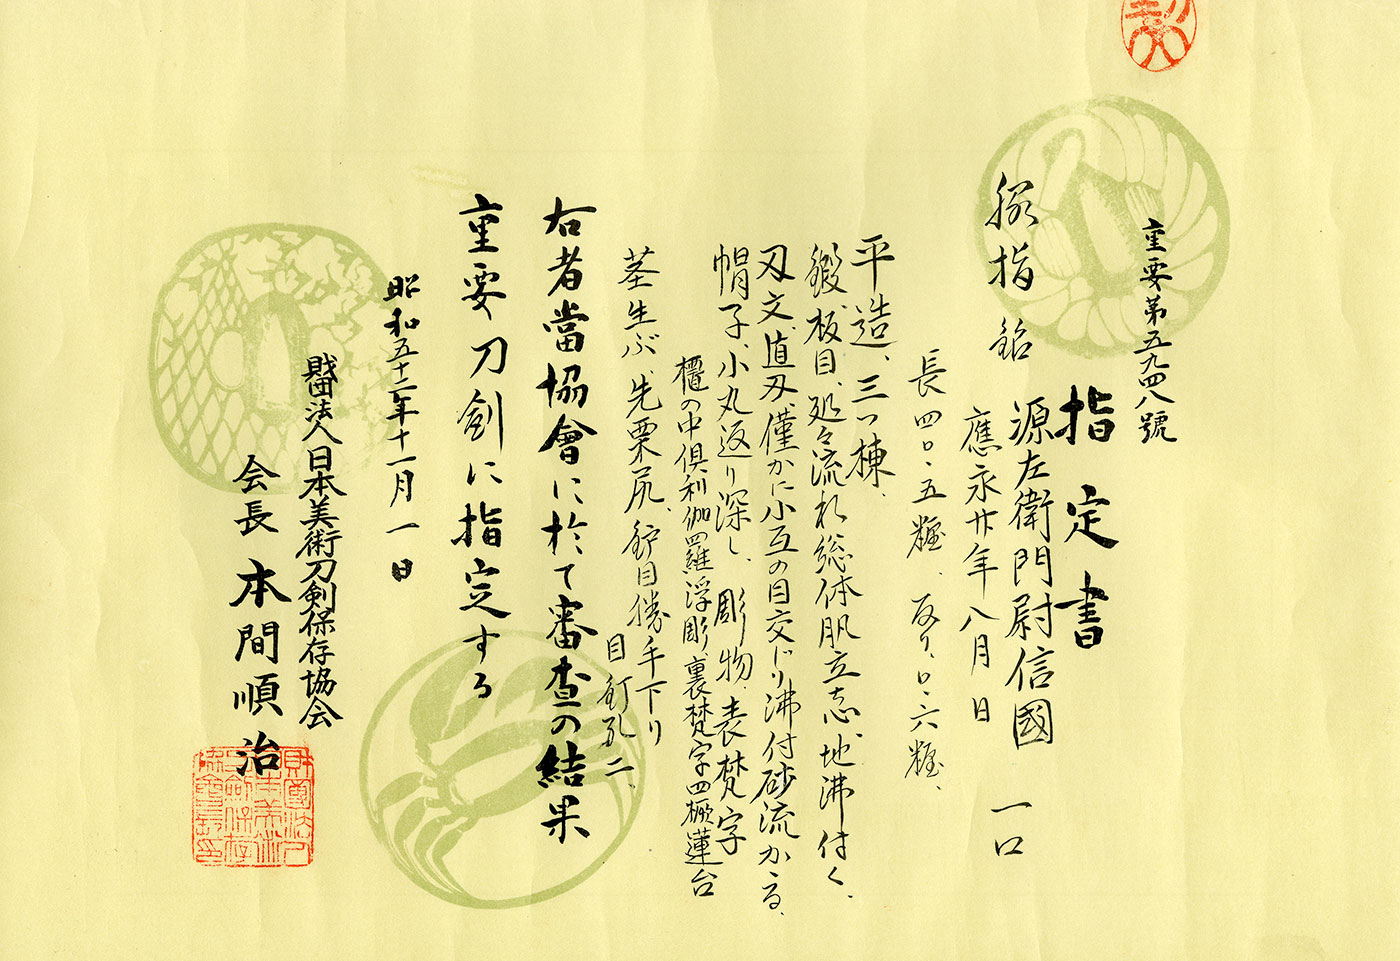 重要第五九四八號
指定書
脇指 銘 源左衛門尉信國 一口
應永廿年八月日
長四〇・五糎、反り、〇・六糎、
平造、三ッ棟、
鍛、板目、処々流れ総体肌立ち、地沸付く、
刃文、直刃、僅かに小互の目交じり沸付砂流かゝる、
帽子、小丸返り深し、彫物、表梵字
櫃の中倶利伽羅浮彫、裏梵字四橛蓮台
茎生ぶ、先栗尻、鈩目勝手下り
目釘孔二、
右者當協會に於て審査の結果
重要刀剣に指定する
昭和五十二年十一月一日
財団法人日本美術刀剣保存協会
会長 本間順治